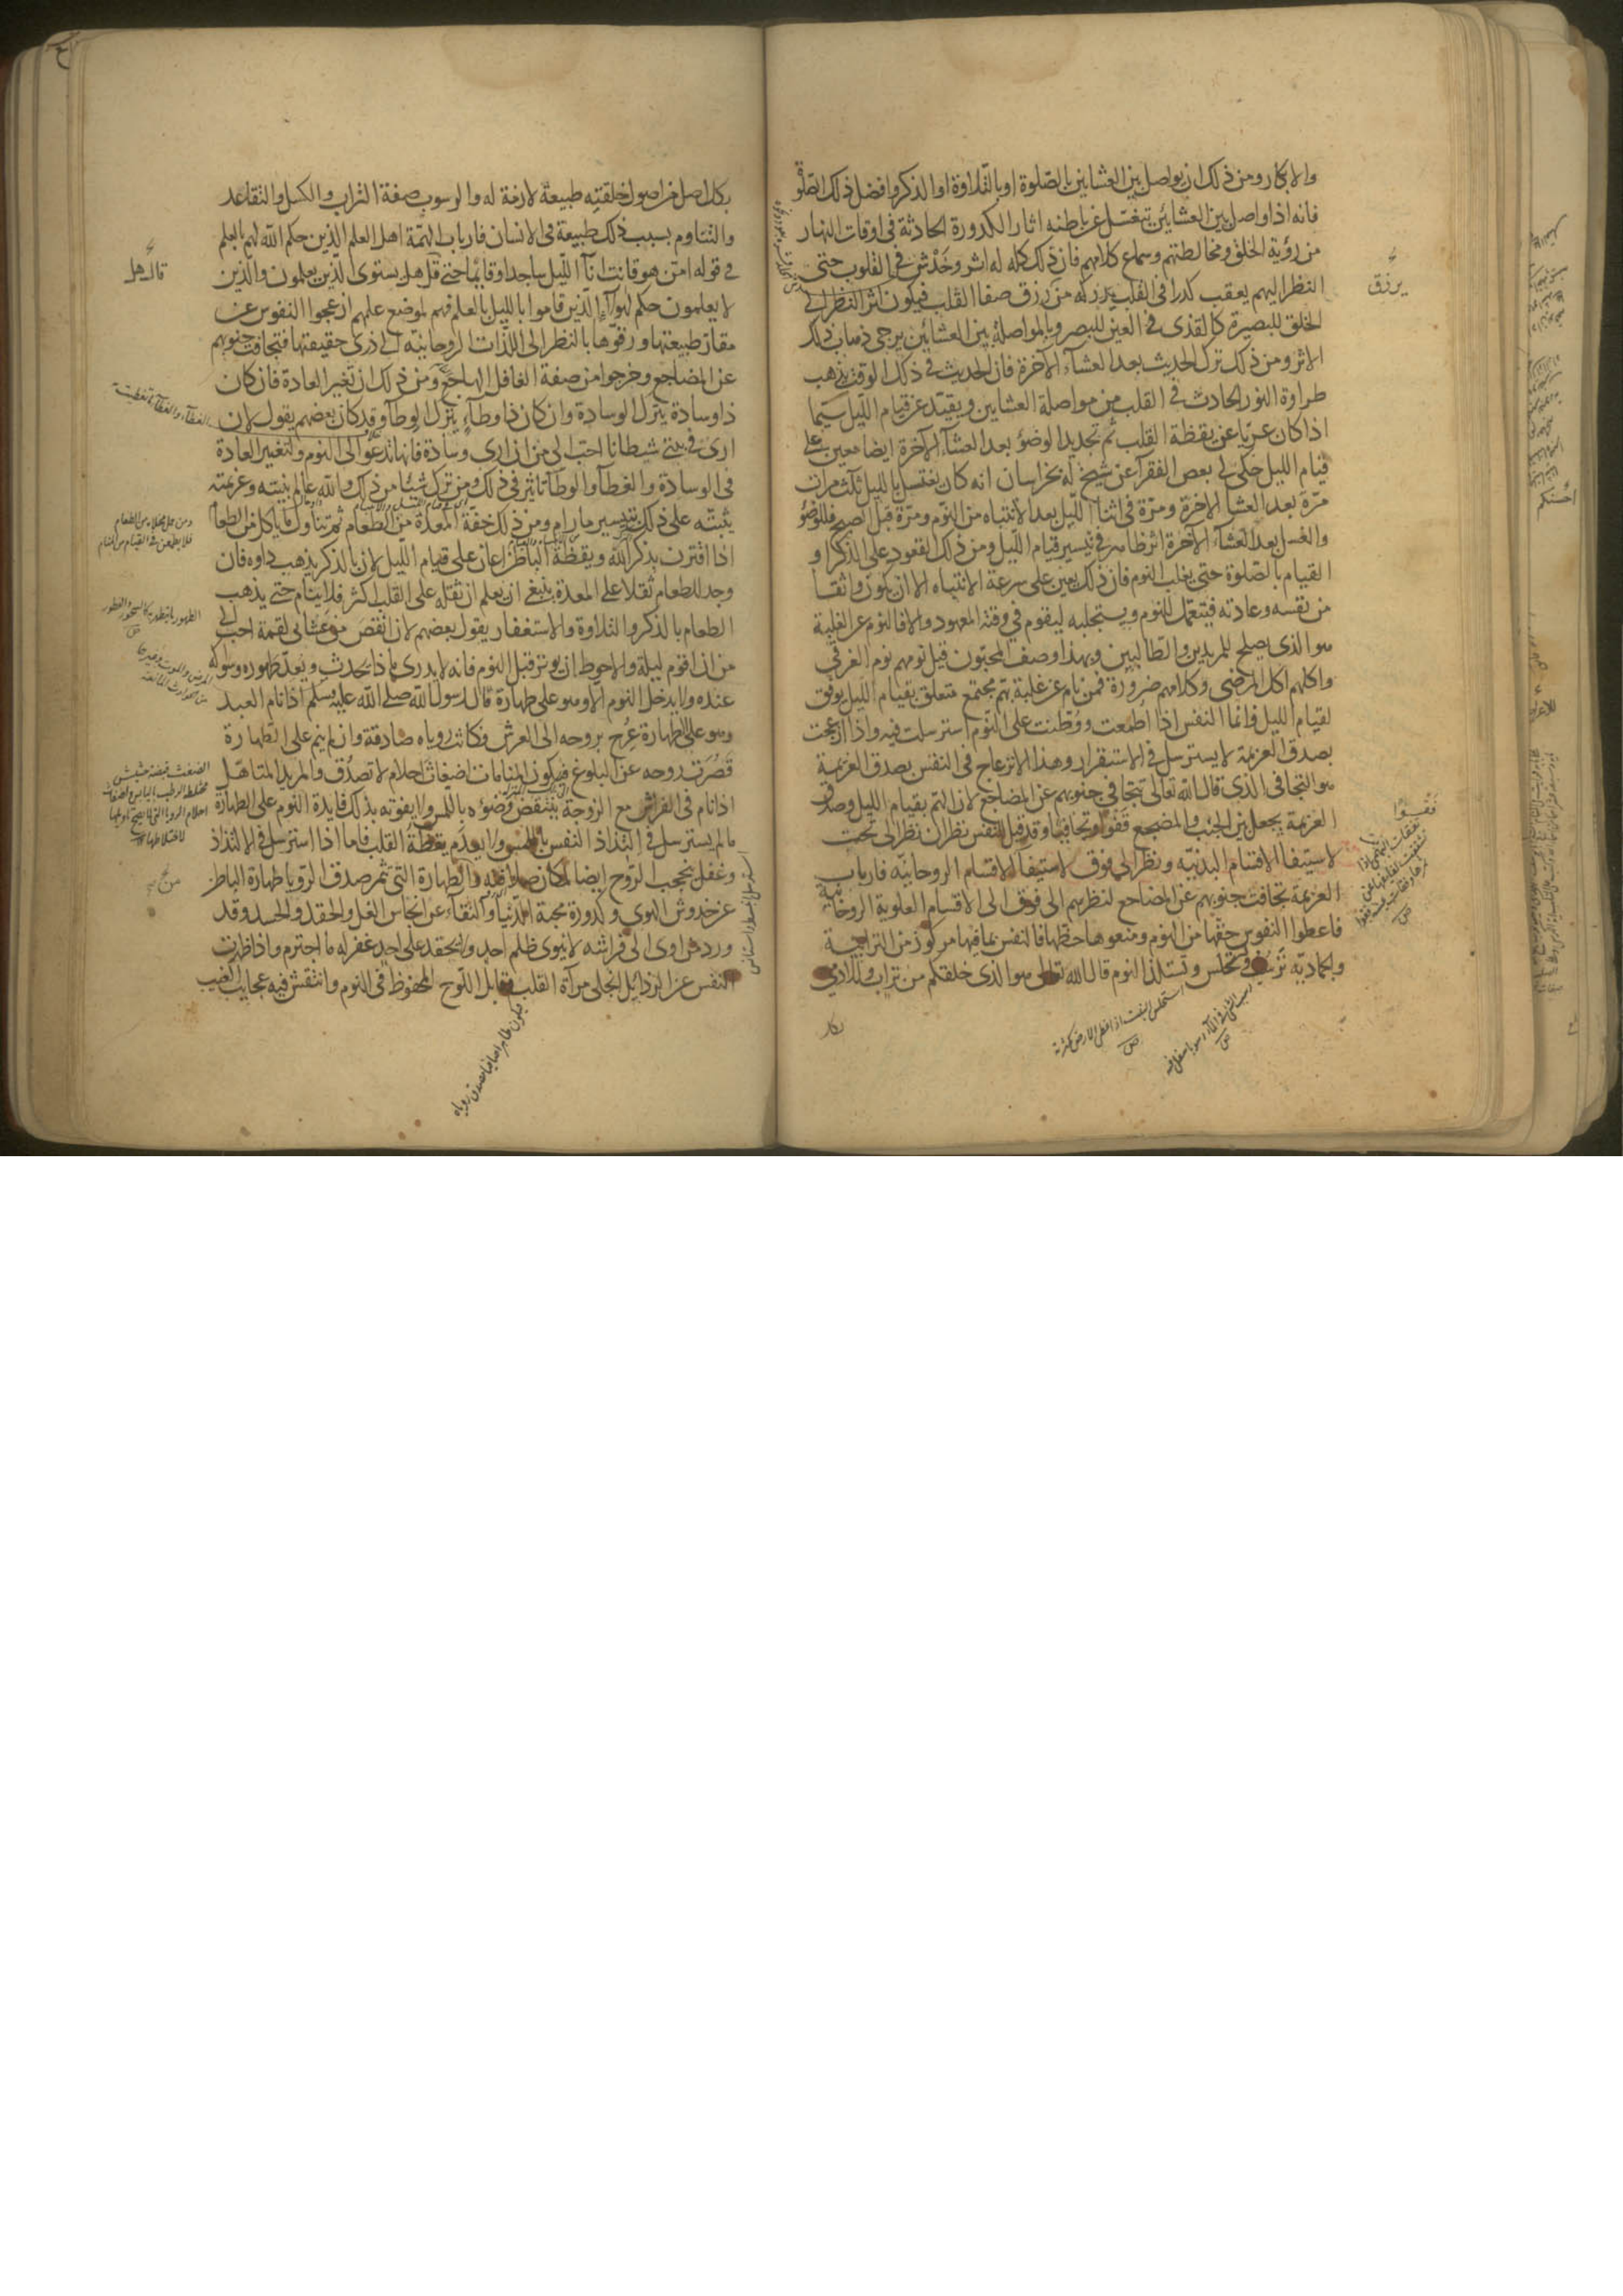 والابكار ومن ذلك ان يواصل بين العشاين بالصلوة او بالتلاوة او الذكر وافضل ذلك الصلوة
فانه اذا واصل بين العشائين تنغسل عن باطنه اثار الكدورة الحادثة في اوقات النهار
من رؤية الخلق ومخالطتهم وسماع كلامهم فان ذلك كله له اثر وخدش في القلوب حتى
النظر اليهم يعقب كدرا في القلب يدركه من رزق صفا القلب فيكون اثر النظر الى
الخلق للبصيرة كالقذى في العين للبصر وبالمواصلة بين العشائين يرجى ذهاب ذلك
الاثر ومن ذلك ترك الحديث بعد العشاء الاخرة فان الحديث في ذلك الوقت يذهب
طراوة النور الحادث في القلب من مواصلة العشاين ويقيد عن قيام الليل سيما
اذا كان عريا عن يقظة القلب ثم تجديد الوضو بعد العشاء الاخرة ايضا معين على
قيام الليل حكى لي بعض الفقرا عن شيخ له بخراسان انه كان يغتسل بالليل ثلث مرات
مرة بعد العشا الاخرة ومرة في اثنا الليل بعد الانتباه من النوم ومرة قبل الصبح فللوضو
والغسل بعد العشاء الاخرة اثر ظاهر في تيسير قيام الليل ومن ذلك القعود على الذكر او
القيام بالصلوة حتى يغلب النوم فان ذلك يعين على سرعة الانتباه الا ان يكون واثقا
من نفسه وعادته فيتعمل للنوم ويستجلبه ليقوم في وقته المعهود والا فالنوم عن الغلبة
هو الذي يصلح للمريدين والطالبين وبهذا وصف المحبون قيل نومهم نوم الغرقى
واكلهم اكل المرضى وكلامهم ضرورة فمن نام عن غلبة بهم مجتمع متعلق بقيام الليل يوفق
لقيام الليل وانما النفس اذا اطمعت ووطنت على النوم استرسلت فيه واذا ازعجت
بصدق العزيمة لا يسترسل في الاستقرار وهذا الانزعاج في النفس بصدق العزيمة
هو التجافي الذي قال الله تعالى تتجافى جنوبهم عن المضاجع لان الهم بقيام الليل وصدق
العزيمة يجعل بين الجنب والمضجع نتوا وتجافيا وقد قيل للنفس نظران نظر الى تحت
لاستيفا الاقسام البدنية ونظر الى فوق لاستيفا الاقسام الروحانية فارباب
العزيمة تجافت جنوبهم عن المضاجع لنظرهم الى فوق الى الاقسام العلوية الروحانية
فاعطوا النفوس حقها من النوم ومنعوها حظها فالنفس بما فيها مركوز من الترابية
والجمادية ترسب وتستحلس وتستلذ النوم قال الله تعالى هو الذي خلقكم من تراب وللادمي
بكل
يرزق
بكل اصل من اصول خلقته طبيعة لازمة له والرسوب صفة التراب والكسل والتقاعد
والتناوم بسبب ذلك طبيعة في الانسان فارباب الهمة اهل العلم الذين حكم الله لهم بالعلم
في قوله امن هو قانت انا الليل ساجدا وقايما حتى قل هل يستوي الذين يعلمون والذين
لا يعلمون حكم لهولاء الذين قاموا بالليل بالعلم فهم لموضع علمهم ازعجوا النفوس عن
مقار طبيعتها ورقوها بالنظر الى اللذات الروحانية الى ذرى حقيقتها فتجافت جنوبهم
عن المضاجع وخرجوا من صفة الغافل الهاجع ومن ذلك ان تغير العادة فان كان
ذا وسادة يترك الوسادة وان كان ذا وطاء يترك الوطاء وقد كان بعضهم يقول لان
ارى في بيتي شيطانا احب الي من ان ارى وسادة فانها تدعو الى النوم ولتغيير العادة
في الوسادة والغطاء والوطاء تاثير في ذلك ومن ترك شيئا من ذلك والله عالم بنيته وعزيمته
يثيبه على ذلك بتيسير ما رام ومن ذلك خفة المعدة من الطعام ثم تناول ما ياكل من الطعام
اذا اقترن بذكر الله ويقظة الباطن اعان على قيام الليل لان بالذكر يذهب داوه فان
وجد للطعام ثقلا على المعدة ينبغي ان يعلم ان ثقله على القلب اكثر فلا ينام حتى يذهب
الطعام بالذكر والتلاوة والاستغفار يقول بعضهم لان انقص من عشاي لقمة احب الي
من ان اقوم ليلة والاحوط ان يوتر قبل النوم فانه لا يدري ماذا يحدث ويعد طهوره وسواكه
عنده ولا يدخل النوم الا وهو على طهارة قال رسول الله صلى الله عليه وسلم اذا نام العبد
وهو على الطهارة عرج بروحه الى العرش فكانت روياه صادقة وان لم ينم على الطهارة
قصرت روحه عن البلوغ فيكون المنامات اضغاث احلام لا تصدق والمريد المتاهل
اذا نام في الفراش مع الزوجة ينتقض وضوءه باللمس ولا يفوته بذلك فايدة النوم على الطهارة
ما لم يسترسل في التذاذ النفس باللمس ولا يعدم يقظة القلب فاما اذا استرسل في الالتذاذ
وغفل يحجب الروح ايضا لمكان صلافته والطهارة التي تثمر صدق الرويا طهارة الباطن
عن خدوش الهوى وكدورة محبة الدنيا والنقاء عن انجاس الغل والحقد والحسد وقد
ورد من اوى الى فراشه لا ينوي ظلم احد ولا يحقد على احد غفر له ما اجترم واذا طهرت
النفس عن الرذايل انجلى مراة القلب وقابل اللوح المحفوظ في النوم وانتقش فيه عجايب الغيب
قال هل